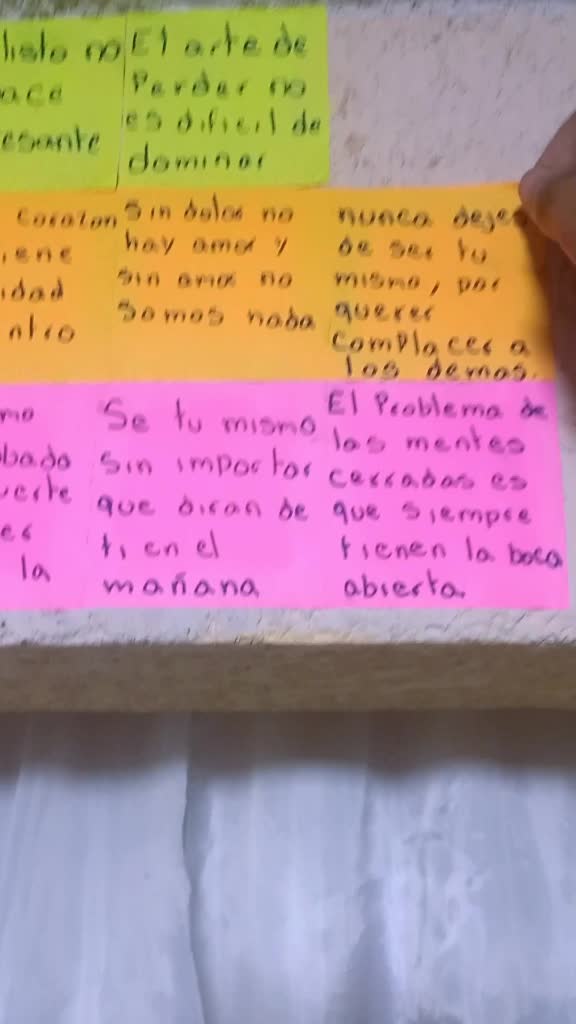 listo no
ace
esante
El arte de
Perder no
es dificil de
dominar
corazon
iene
idad
ntro
Sin dolor no
hay amor y
sin amor no
somos nada
nunca dejes
de ser tu
mismo, por
querer
complacer a
los demas.
mo
bado
uerte
er
la
Se tu mismo
sin importar
que diran de
ti en el
mañana
El Problema de
las mentes
cerradas es
que siempre
tienen la boca
abierta.